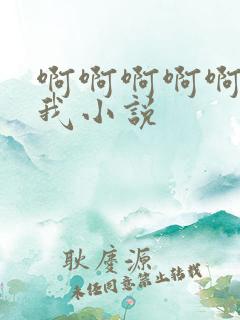 啊啊啊啊啊
我小说
耿庆源
未经同意禁止转载